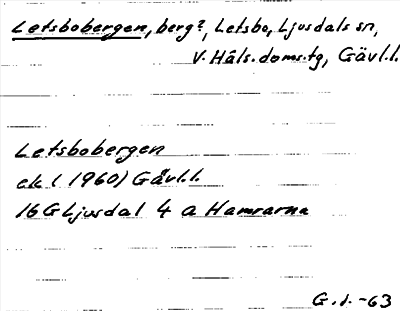 Letsbobergen, berg?, Letsbo, Ljusdals sn,
V. Häls. doms.tg, Gävl.l.
Letsbobergen
ek (1960) Gävl.l.
16 G Ljusdal 4 a Hamrarna
G.I. -63